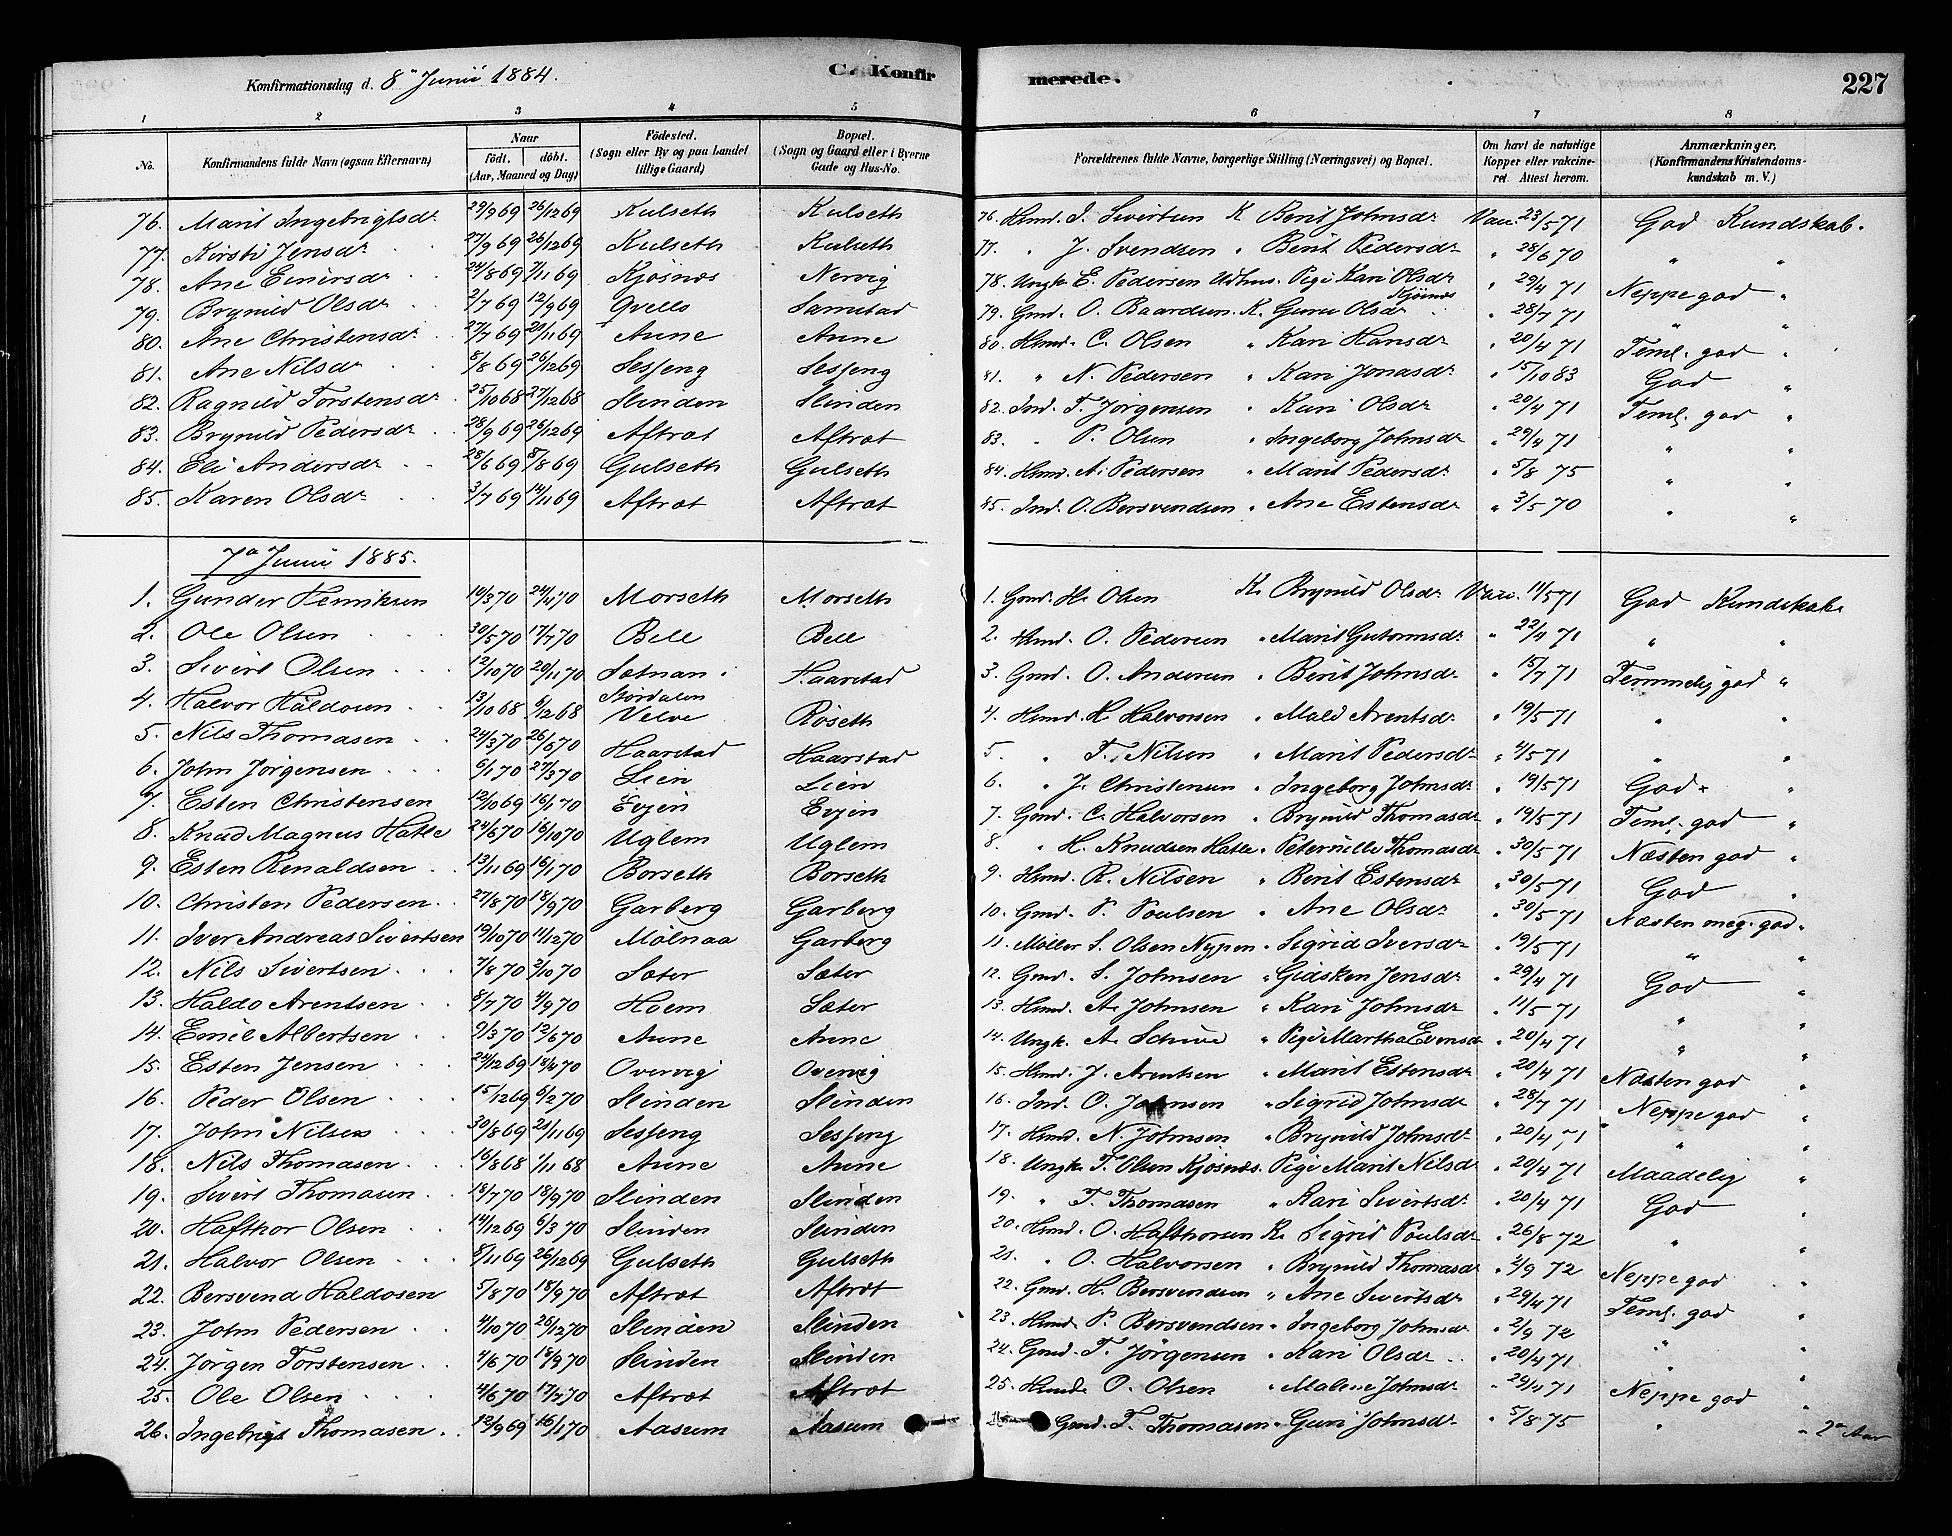 Konfirmationsdag d. 8de Junii 1884. C. Konfirmerede. 227
1 2 3 4 5 6 7 8
No. Konfirmandens fulde Navn (ogsaa Efternavn) Naar født, døbt. (Aar, Maaned og Dag) Fødested. (Sogn eller By og paa Landet tillige Gaard) Bopæl. (Sogn og Gaard eller i Byerne Gade og Hus-No. Forældrenes fulde Navne, borgerlige Stilling (Næringsvei) og Bopæl. Om havt de naturlige Kopper eller vakcineret. Attest herom. Anmærkninger. (Konfirmandens Kristendomskundskab m. V.)
76. Marit Ingebrigtsdr 29/9 69 26/12 69 Kulseth Kulseth 76. Hmd. I. Sivertsen K. Berit Johnsdr Vac. 23/5 71 God Kundskab.
77. Kirsti Jensdr 27/9 69 26/12 69 Kulseth Kulseth 77. " J. Svendsen " Berit Pedersdr " 28/6 70 " "
78. Ane Einersdr 24/8 69 7/11 69 Kjøsnæs Nervig 78. Ungk. E. Pedersen Udhus Pige Kari Olsdr Kjösnæs " 29/4 71 Neppe god "
79. Brynild Olsdr 2/7 69 12/9 69 Qvello Samstad 79. Gmd. O. Baardsen K. Guru Olsdr " 28/7 71 " "
80. Ane Christensdr 27/7 69 21/11 69 Aune Aune 80. Hmd. C. Olsen " Kari Hansdr " 20/4 71 Teml. god "
81. Ane Nilsdr 8/8 69 26/12 69 Sesseng Sesseng 81. " N. Pedersen " Kari Jonasdr " 15/10 83 God "
82. Ragnild Torstensdr 25/10 68 27/12 68 Slinden Slinden 82. Ind. T. Jørgensen " Kari Olsdr " 20/4 71 Teml. god "
83. Brynild Pedersdr 28/9 69 26/12 69 Aftret Aftret 83. " P. Olsen " Ingeborg Johnsdr " 29/4 71 " "
84. Eli Andersdr 28/6 69 8/8 69 Gulseth Gulseth 84. Hmd. A. Pedersen " Marit Pedersdr " 5/8 75 " "
85. Karen Olsdr 3/7 69 14/11 69 Aftret Aftret 85. Ind. O. Bersvendsen " Ane Estensdr " 3/5 70 " "
7de Junii 1885.
1. Gunder Henriksen 19/3 70 24/4 70 Morseth Morseth 1. Gmd. H. Olsen K. Brynild Olsdr Vac. 11/5 71 God Kundskab
2. Ole Olsen 30/5 70 17/7 70 Bell Bell 2. Hmd. O. Pedersen " Marit Guttormsdr " 22/4 71 " "
3. Sivert Olsen 12/10 70 20/11 70 Sætnan i Haarstad 3. Gmd. O. Andersen " Berit Johnsdr " 15/7 71 Temmelig god "
4. Halvor Haldosen 13/10 68 6/12 68 Størdalen Velve Røseth 4. Hmd. H. Halvorsen " Malo Arentsdr " 19/5 71 " "
5. Nils Thomasen 24/3 70 26/6 70 Haarstad Haarstad 5. " T. Nilsen " Marit Pedersdr " 4/5 71 " "
6. John Jørgensen 6/1 70 27/3 70 Lien Lien 6. " J. Christensen " Ingeborg Johnsdr " 19/5 71 God "
7. Esten Christensen 12/10 69 16/1 70 Evjen Evjen 7. Gmd. C. Halvorsen " Brynild Thomasdr " 19/5 71 Teml. god "
8. Knud Magnus Hatle 24/6 70 16/10 70 Uglem Uglem 8. " H. Knudsen Hatle " Peternille Thomasdr " 30/5 71 Næsten god "
9. Esten Renaldsen 13/11 69 16/1 70 Borseth Borseth 9. Hmd. R. Nilsen " Berit Estensdr " 30/5 71 God "
10. Christen Pedersen 27/8 70 18/9 70 Garberg Garberg 10. Gmd. P. Poulsen " Ane Olsdr " 30/5 71 Næsten meg. god "
11. Iver Andreas Sivertsen 19/10 70 11/12 70 Mølnaa Garberg 11. Møller S. Olsen Nypen " Sigrid Iversdr " 19/5 71 " "
12. Nils Sivertsen 7/8 70 2/10 70 Sæter Sæter 12. Gmd. S. Johnsen " Gidsken Jensdr " 29/4 71 God "
13. Haldo Arentsen 8/7 70 4/9 70 Hoem Sæter 13. Hmd. A. Johnsen " Kari Johnsdr " 11/5 71 " "
14. Emil Albertsen 9/3 70 12/6 70 Aune Aune 14. Ungk. A. Schive " Pige Martha Evensdr " 20/4 71 " "
15. Esten Jensen 24/12 69 18/4 70 Overvig Overvig 15. Hmd. J. Arentsen " Marit Estensdr " 20/4 71 Næsten god "
16. Peder Olsen 15/12 69 6/2 70 Slinden Slinden 16. Ind. O. Johnsen " Sigrid Johnsdr " 28/7 71 Neppe god "
17. John Nilsen 30/8 69 21/11 69 Sesseng Sesseng 17. Hmd. N. Johnsen " Brynild Johnsdr " 20/4 71 " "
18. Nils Thomasen 16/8 68 1/11 68 Aune Aune 18. Ungk. T. Olsen Kjösnæs " Pige Marit Nilsdr " 20/4 71 Maadelig "
19. Sivert Thomasen 18/7 70 18/9 70 Slinden Slinden 19. " T. Thomasen " Kari Sivertsdr " 20/4 71 God "
20. Hafthor Olsen 14/12 69 6/3 70 Slinden Slinden 20. Hmd. O. Hafthorsen K. Sigrid Poulsdr " 26/8 72 " "
21. Halvor Olsen 8/11 69 26/12 69 Gulseth Gulseth 21. " O. Halvorsen " Brynild Thomasdr " 2/9 72 Neppe god "
22. Bersvend Haldosen 5/8 70 18/9 70 Aftret Aftret 22. Gmd. H. Bersvendsen " Ane Sivertsdr " 29/4 71 Teml. god "
23. John Pedersen 4/10 70 26/12 70 Slinden Slinden 23. Hmd. P. Bersvendsen " Ingeborg Johnsdr " 2/9 72 " "
24. Jørgen Torstensen 4/6 70 18/9 70 Slinden Slinden 24. Gmd. T. Jørgensen " Kari Olsdr " 20/4 71 " "
25. Ole Olsen 4/6 70 17/7 70 Aftret Aftret 25. Hmd. O. Olsen " Malene Johnsdr " 29/4 71 Neppe god "
26. Ingebrigt Thomasen 12/9 69 16/1 70 Aasum Aasum Gmd. T. Thomasen " Guri Johnsdr " 5/8 75 " " 2de Aar